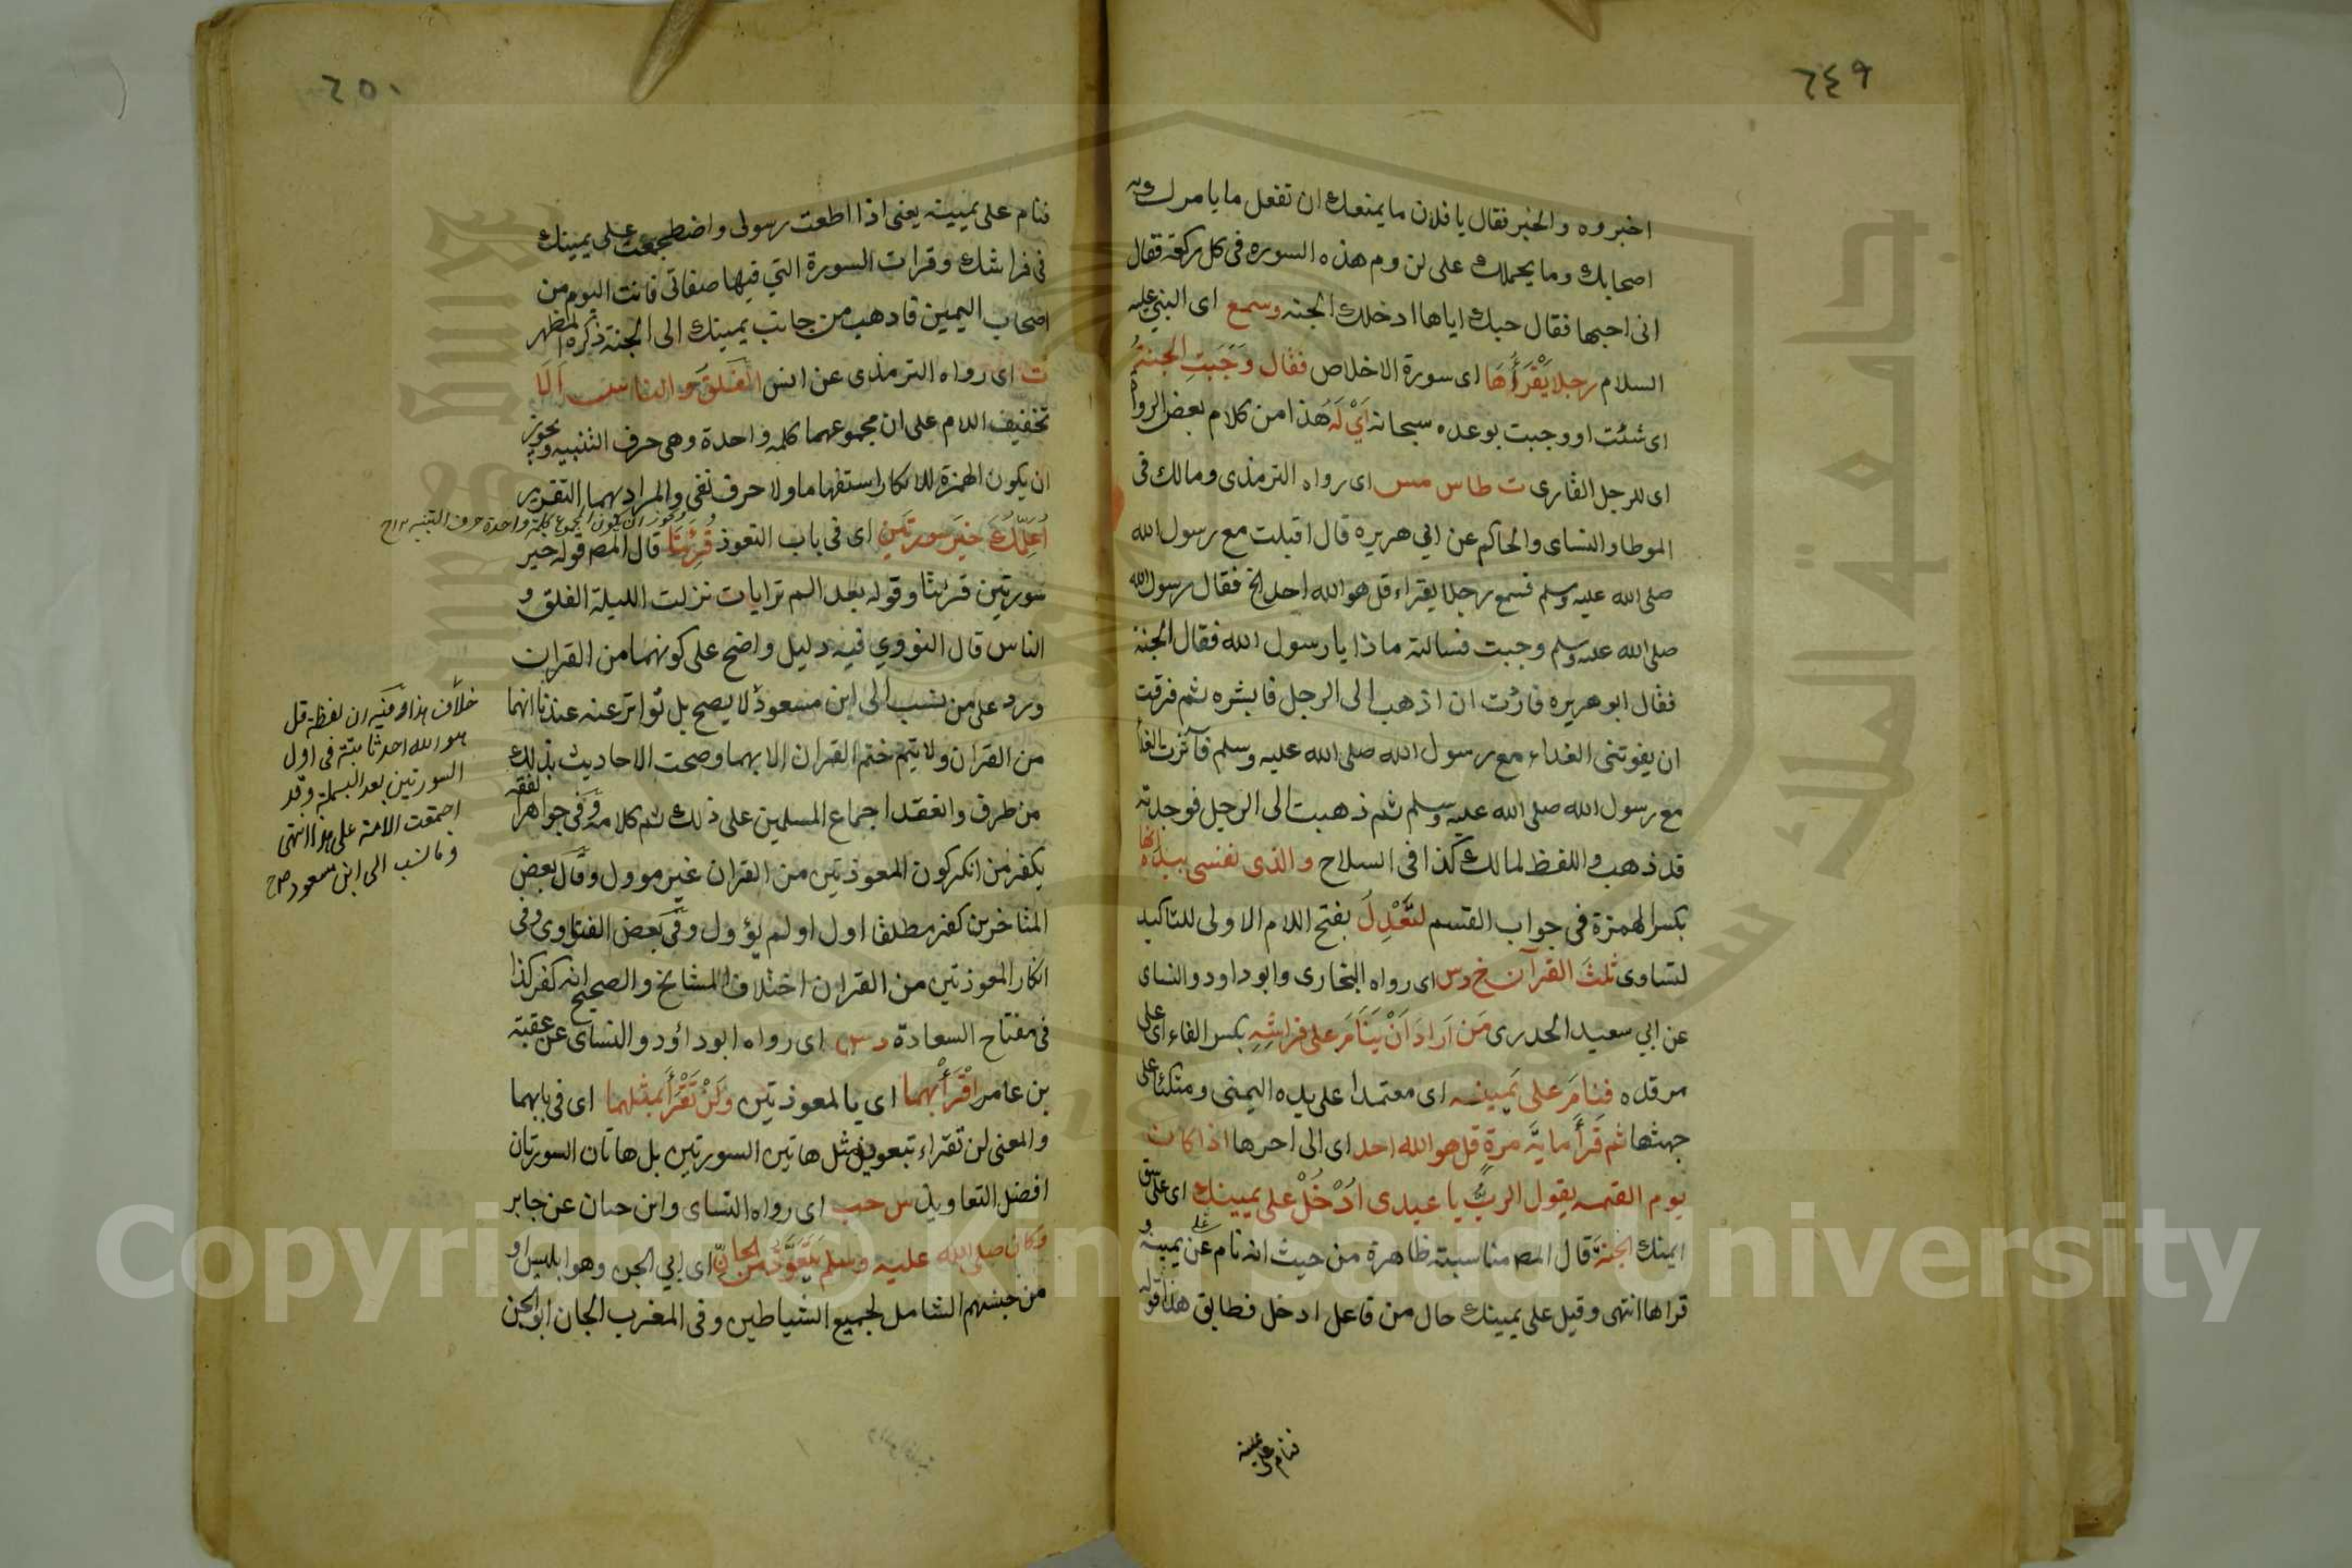 ٦٤٩
اخبروه والخبر فقال يا فلان ما يمنعك ان تفعل ما يامرك به
اصحابك وما يحملك على لزوم هذه السوره فى كل ركعة فقال
انى احبها فقال حبك اياها ادخلك الجنه وسمع اى النبي عليه
السلام رجلا يَقْرَأُهَا اى سورة الاخلاص فقال وَجَبَتِ الجنةُ
اى شئت او وجبت بوعده سبحانه اَيْ لَهُ هذا من كلام بعض الرواة
اى للرجل القارى ت طا س مس اى رواه الترمذى ومالك فى
الموطا والنساى والحاكم عن ابي هريره قال اقبلت مع رسول الله
صلى الله عليه وسلم فسمع رجلا يقراء قل هو الله احد الخ فقال رسول الله
صلى الله عليه وسلم وجبت فسالته ماذا يا رسول الله فقال الجنة
فقال ابو هريره فاردت ان اذهب الى الرجل فابشره ثم فرقت
ان يفوتنى الغداء مع رسول الله صلى الله عليه وسلم فآثرت الغداء
مع رسول الله صلى الله عليه وسلم ثم ذهبت الى الرجل فوجدته
قد ذهب واللفظ لمالك كذا فى السلاح والذى نفسى بيده انها
بكسر الهمزة فى جواب القسم لتَعْدِلُ بفتح اللام الاولى للتاكيد
لتساوى ثلثَ القرآن خ د س اى رواه البخارى وابو داود والنساى
عن ابي سعيد الخدرى مَن اَرادَ اَنْ يَنَامَ على فراشِهِ بكسر الفاء اى على
مرقده فنامَ على يَمينه اى معتمدا على يده اليمنى ومتكئا على
جهتها ثم قَرأَ مايةَ مرةٍ قل هو الله احد اى الى اخرها اذا كان
يوم القيمه يقول الربُّ يا عبدى ادْخُلْ على يمينك اى على
ايمنك الجنةَ قال المص مناسبة ظاهرة من حيث انه نام على يمينه و
قراها انتهى وقيل على يمينك حال من فاعل ادخل فطابق هذا قوله
فنام على يمينه
٦٥٠
فنام على يمينه يعنى اذا اطعت رسولى واضطجعت على يمينك
فى فراشك وقرات السورة التي فيها صفاتى فانت اليوم من
اصحاب اليمين فاذهب من جانب يمينك الى الجنة ذكره المظهر
ت اى رواه الترمذى عن انس الفلقَ والناس اَلَا
تخفيف اللام على ان مجموعهما كلمه واحدة وهى حرف التنبيه ويجوز
ان يكون الهمزة للانكار استفهاما ولا حرف نفى والمراد بهما التقرير
ويجوز ان يكون المجموع كلمة واحدة حرف التنبيه
اُعَلِّمُكَ خيرَ سورتَينِ اى فى باب التعوذ قُرِئَتَا قال المص قوله خير
سورتين قرئتا وقوله بعد الم تر ايات نزلت الليلة الفلق و
الناس قال النووي فيه دليل واضح على كونهما من القران
ورد على من نسب الى ابن مسعود لا يصح بل تواتر عنه عندنا انهما
من القران ولا يتم ختم القران الا بهما وصحت الاحاديث بذلك
من طرق وانعقد اجماع المسلمين على ذلك ثم كلامه وفى جواهر الفقه
يكفر من انكر كون المعوذتين من القران غير موول وقال بعض
المتاخرين كفر مطلقا اول او لم يؤول وفى بعض الفتاوى وفى
انكار المعوذتين من القران اختلاف المشايخ والصحيح انه كفر كذا
فى مفتاح السعادة د س اى رواه ابو داؤد والنساى عن عقبة
بن عامر اقْرَأْ بهما اى يا لمعوذتين ولَنْ تَقْرَأَ بمثلهما اى فى بابهما
والمعنى لن تقراء تبعويذ مثل هاتين السورتين بل هاتان السورتان
افضل التعاويذ س حب اى رواه النساى وابن حبان عن جابر
وكان صلى الله عليه وسلم يَتَعَوَّذُ من الجانّ اى ابي الجن وهو ابليس او
من جنسهم الشامل لجميع الشياطين وفى المغرب الجان ابو الجن
خلاف هذا وفيه ان لفظة قل
هو الله احد ثابتة فى اول
السورتين بعد البسملة وقد
اجمعت الامة على هذا انتهى
وما نسب الى ابن مسعود صح
Copyright © King Saud University
جامعة الملك سعود